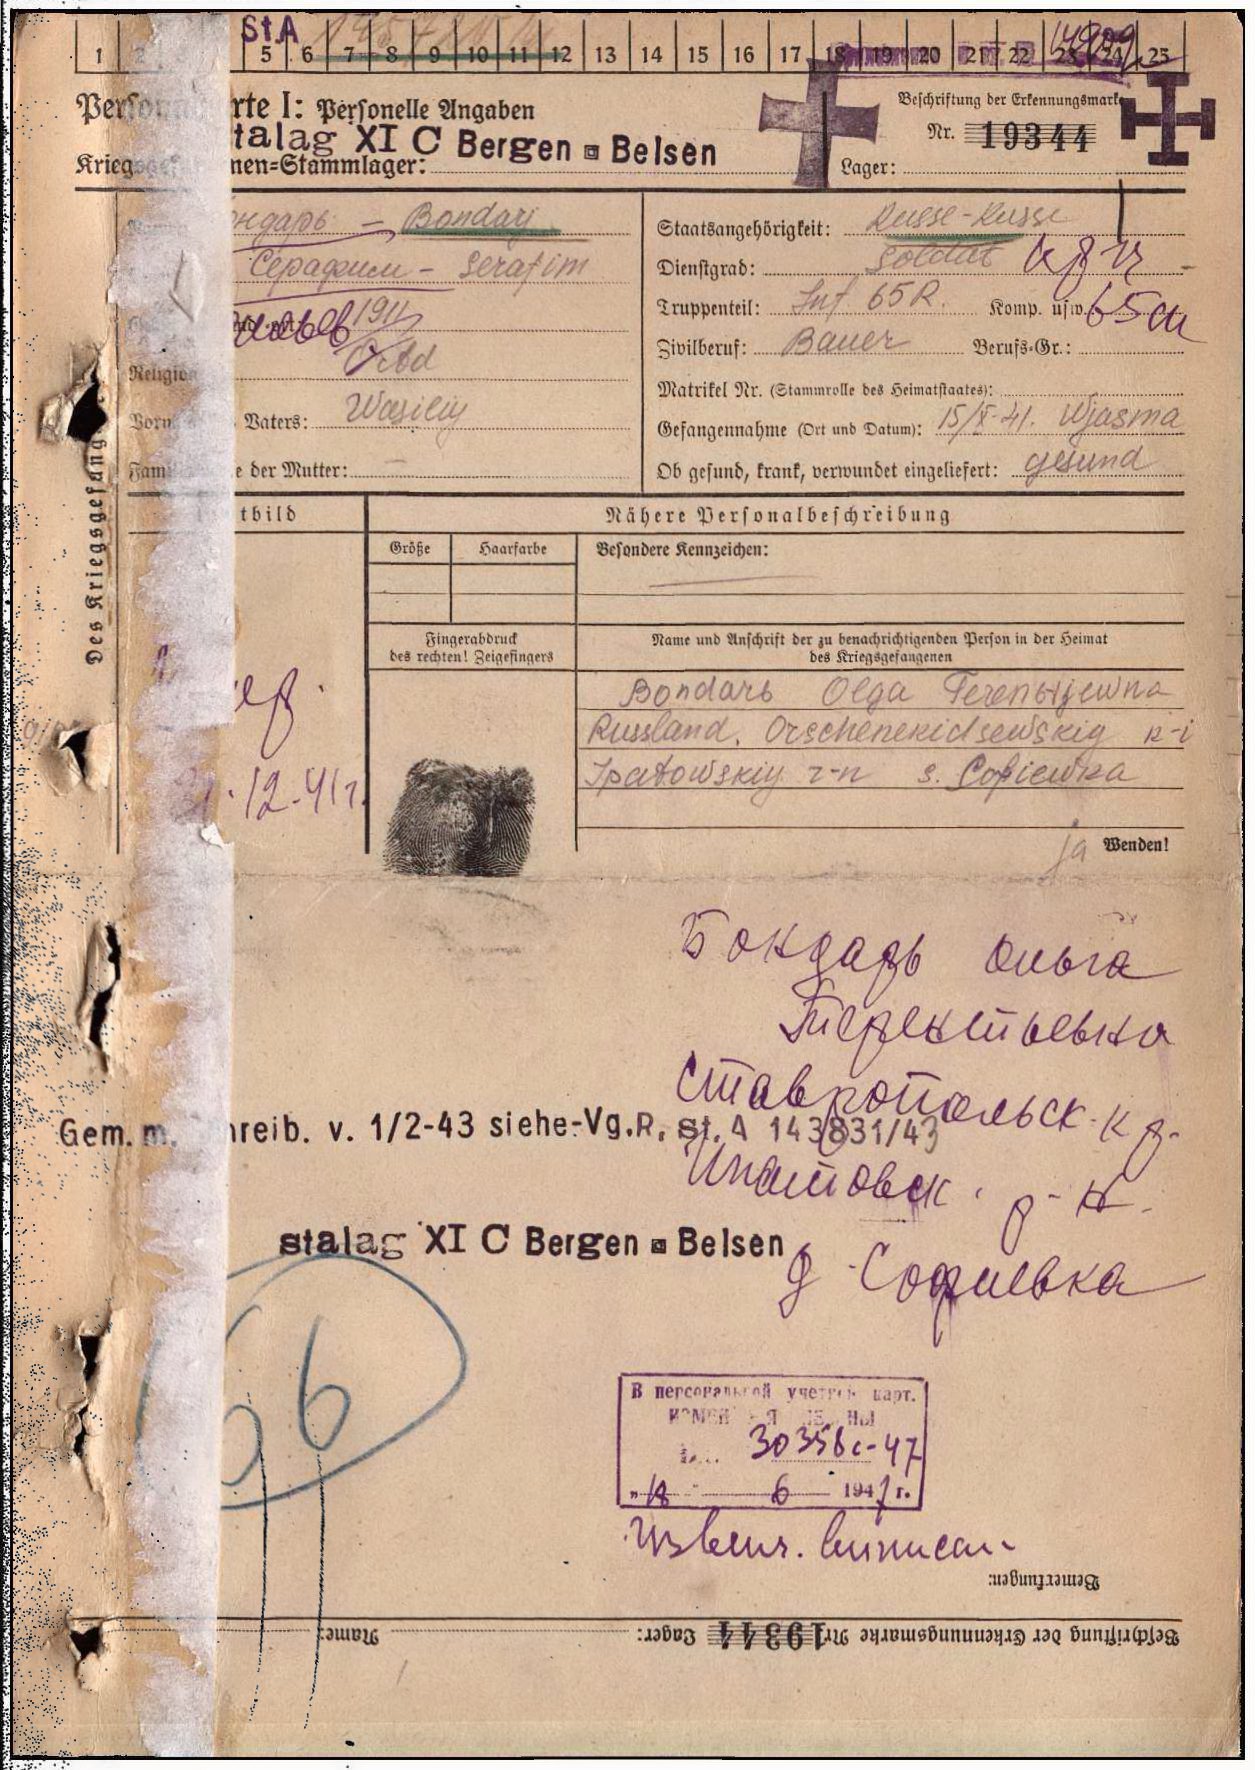 St.A
1 2 5 6 7 8 9 10 11 12 13 14 15 16 17 18 19 20 21 22 23 24 25
rte I: Personelle Angaben
Beschriftung der Erkennungsmarke
Nr. 19344
talag XI C Bergen Belsen
nen=Stammlager:
Lager:
ндарь – Bondarj
Серафим – Serafim
1911
Religion
Ortod
Vaters: Wasiliy
e der Mutter: –
Staatsangehörigkeit: Russe-Russe
Dienstgrad: Soldat
Truppenteil: Inf. 65 R. Komp. usw.
Zivilberuf: Bauer Berufs=Gr.:
Matrikel Nr. (Stammrolle des Heimatstaates):
Gefangennahme (Ort und Datum): 15/X-41. Wjasma
Ob gesund, krank, verwundet eingeliefert: gesund
Des Kriegsgefang
tbild
Nähere Personalbeschreibung
Größe Haarfarbe Besondere Kennzeichen:
Fingerabdruck
des rechten! Zeigefingers
Name und Anschrift der zu benachrichtigenden Person in der Heimat
des Kriegsgefangenen
Bondarь Olga Terentijewna
Russland, Orschenekidsewskiy k-i
Ipatowskiy r-n s. Cofiewka
12.41г.
ja Wenden!
Бондарь Ольга
Терентьевна
Ставропольск. кр.
Gem. m. hreib. v. 1/2-43 siehe-Vg.R. St. A 143831/43
Ипатовск. р-н.
stalag XI C Bergen Belsen
д. Софиевка
66
В персональной учетной карт.
30358с-47
„18" 6 1947 г.
Извещ. выписан
Bemerkungen:
Beschriftung der Erkennungsmarke Nr. 19344 Lager: Name: